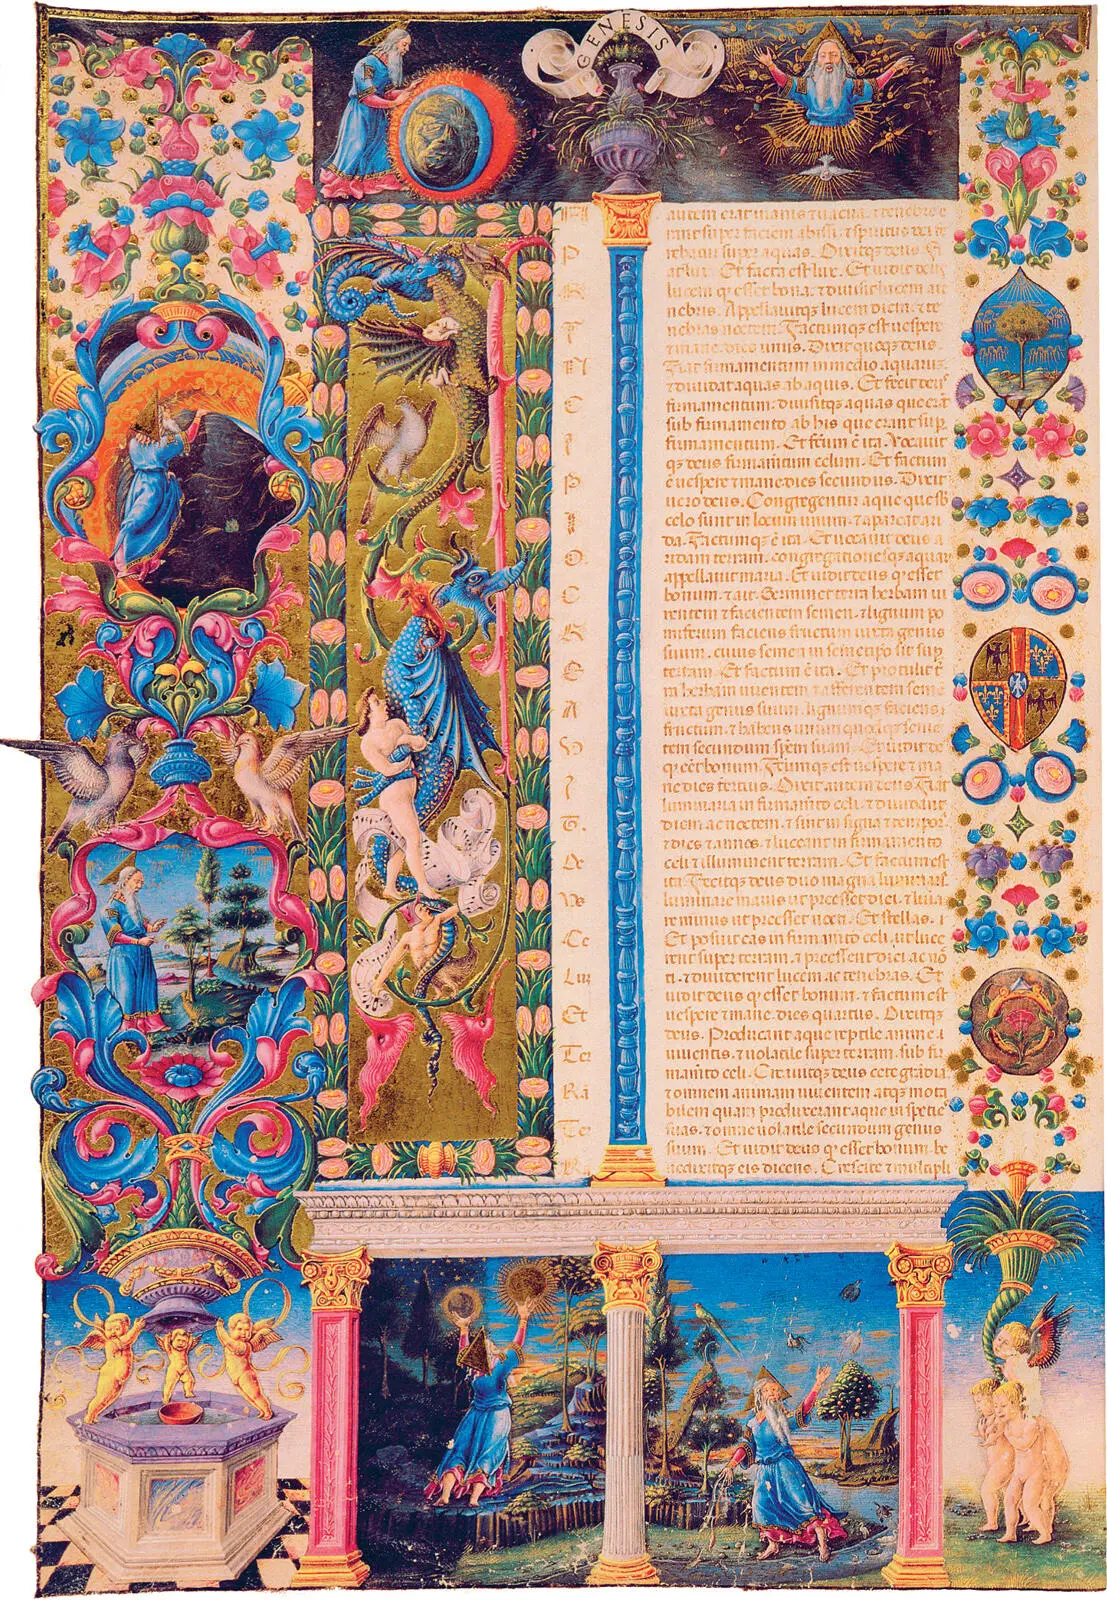 GENESIS
P
R
I
N
C
I
P
I
O
C
R
E
A
V
I
T.
De
Vs
Ce
Lum
Et
Ter
Ra
Ter
Ra
autem erat inanis ⁊ uacua. ⁊ tenebre e
rant super faciem abissi. ⁊ spiritus dei fe
rebatur super aquas. Dixitqꝫ deus. Fi
at lux. Et facta est lux. Et uidit deus
lucem qꝫ esset bona: ⁊ diuisit lucem a te
nebris. Appellauitqꝫ lucem diem: ⁊ te
nebras noctem. Factumqꝫ est uespere
⁊ mane dies unus. Dixit quoqꝫ deus.
Fiat firmamentum in medio aquarum:
⁊ diuidat aquas ab aquis. Et fecit deus
firmamentum. diuisitqꝫ aquas que erāt
sub firmamento ab his que erant sup
firmamentum. Et fc̄m ē ita. Vocauit
qꝫ deus firmamētum celum. Et factum
ē uespere ⁊ mane dies secundus. Dixit
uero deus. Congregentur aque que sub
celo sunt in locum unum. ⁊ apareat ari
da. Factumqꝫ ē ita. Et uocauit deus a
ridam terram. congregationesqꝫ aquarꝫ
appellauit maria. Et uidit deus qꝫ esset
bonum. ⁊ ait. Germinet terra herbam ui
rentem ⁊ facientem semen. ⁊ lignum po
miferum faciens fructum iuxta genus
suum. cuius semen in semetipso sit sup
terram. Et factum ē ita. Et protulit t̄
ra herbam uirentem ⁊ afferentem semē
iuxta genus suum. lignumqꝫ faciens
fructum. ⁊ habens unumquodqꝫ semen
tem secundum spēm suam. Et uidit de
qꝫ eēt bonum. Fc̄umqꝫ est uespere ⁊ ma
ne dies tertius. Dixit autem deus. Fiāt
luminaria in firmamēto celi. ⁊ diuidant
diem ac noctem. ⁊ sint in signa ⁊ tempora
⁊ dies ⁊ annos. ⁊ luceant in firmamento
celi ⁊ illuminent terram. Et factum est
ita. Fecitqꝫ deus duo magna luminaria.
luminare maius ut preesset diei. ⁊ luīa
re minus ut preesset nocti. Et stellas.
Et posuit eas in firmamēto celi. ut luce
rent super terram. ⁊ preessent diei ac noc
ti. ⁊ diuiderent lucem ac tenebras. Et
uidit deus qꝫ esset bonum. ⁊ factum est
uespere ⁊ mane. dies quartus. Dixitqꝫ
deus. Producant aque reptile anime
uiuentis. ⁊ uolatile super terram. sub fir
mamēto celi. Creauitqꝫ deus cete grādia
⁊ omnem animam uiuentem atqꝫ mota
bilem quam produxerant aque in specie
suas. ⁊ omne uolatile secundum genus
suum. Et uidit deus qꝫ esset bonum. be
nedixitqꝫ eis dicens. Crescite ⁊ multipli